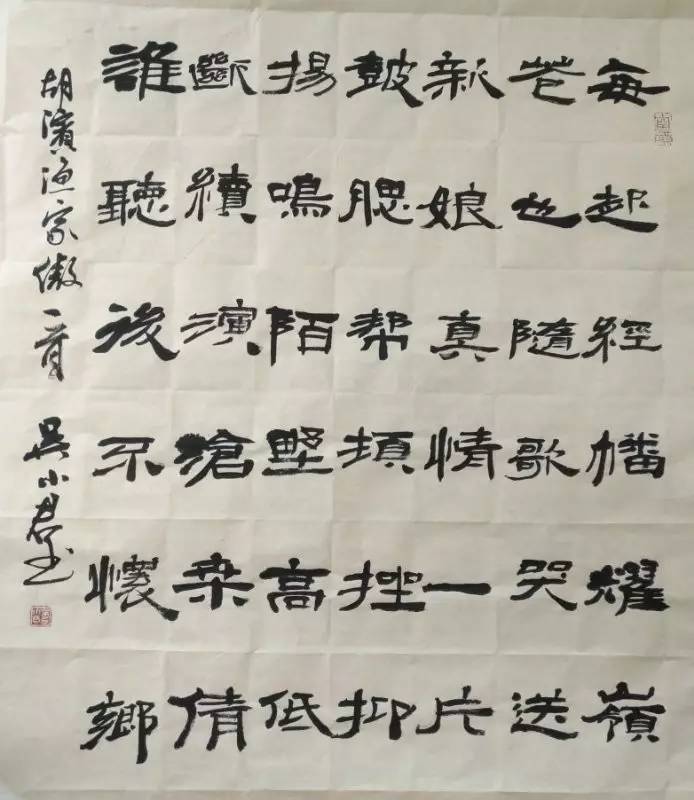 每起經幡耀嶺
苍也隨歌哭送
新娘真情一片
鼓腮帮頓挫抑
揚鳴陌墅高低
斷續演滄桑倩
誰聽後不懷鄉
胡濱渔家傲一首 吳小君书